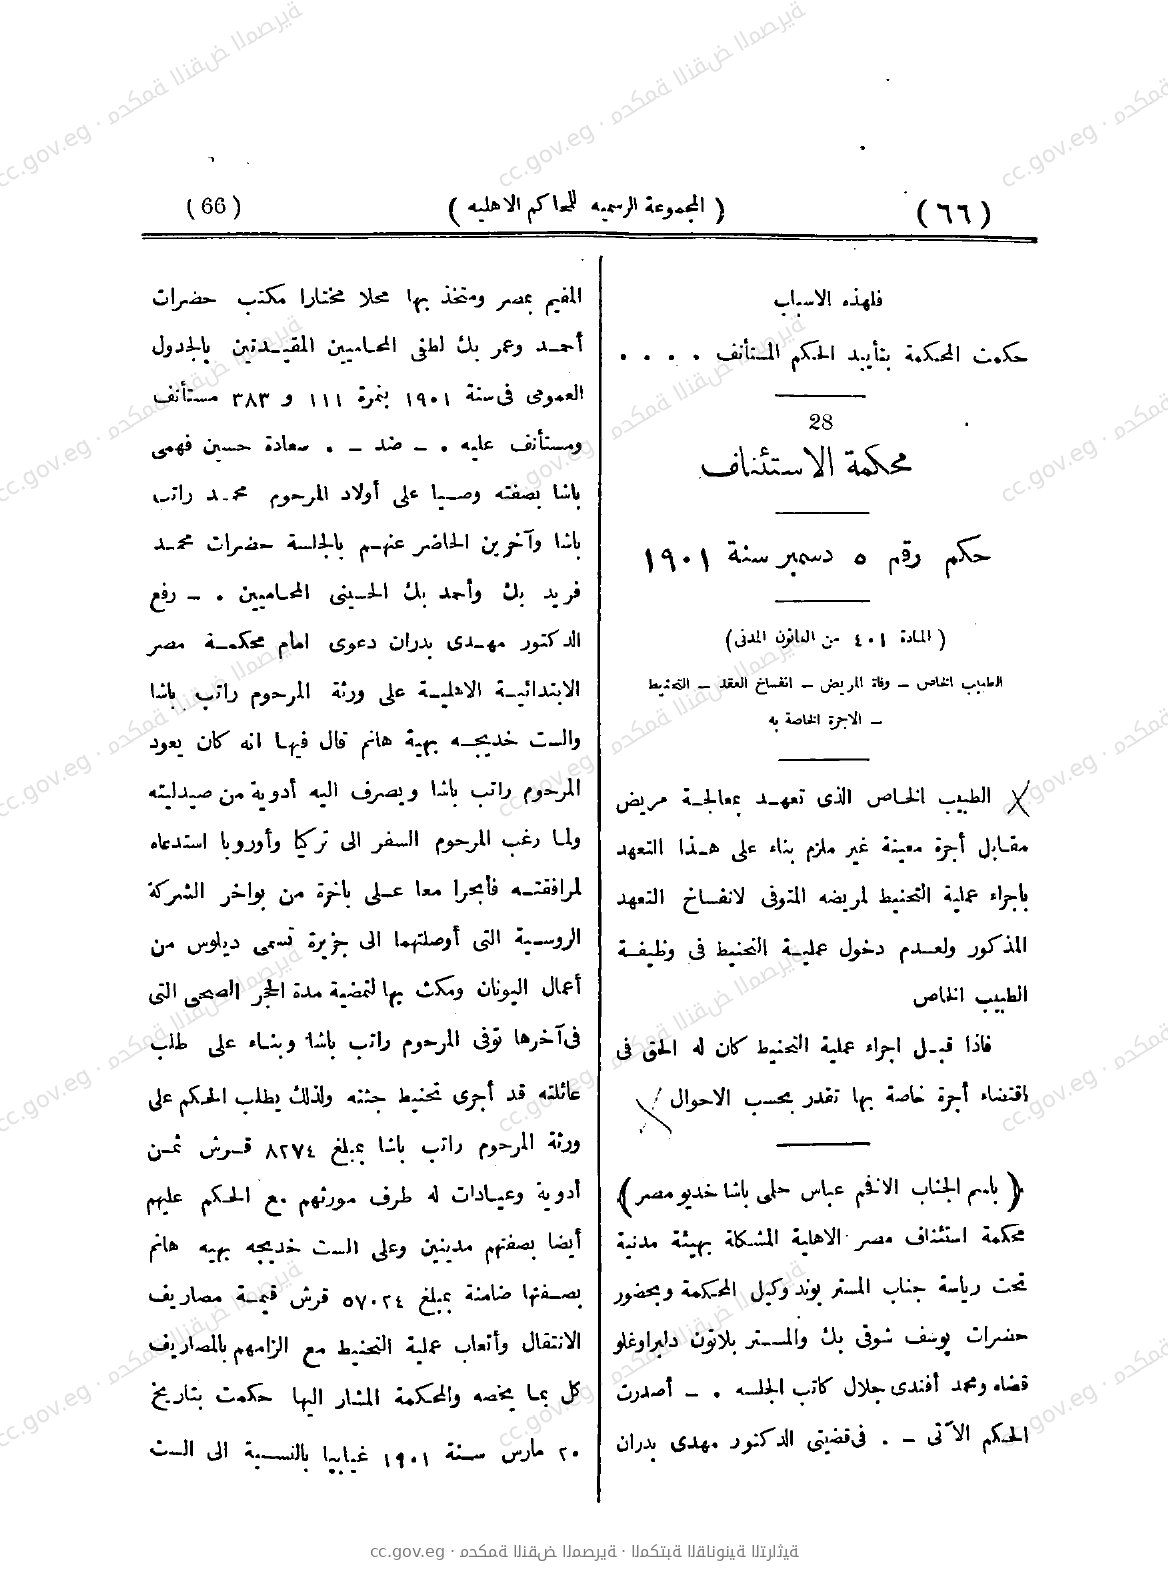 ( ٦٦ )
( المجموعة الرسميه للمحاكم الاهليه )
( 66 )
فلهذه الاسباب
حكمت المحكمة بتأييد الحكم المستأنف . . . .
28
محكمة الاستئناف
حكم رقم ٥ دسمبر سنة ١٩٠١
( المادة ٤٠١ من القانون المدنى )
الطبيب الخاص ــ وفاة المريض ــ انفساخ العقد ــ التحنيط
ــ الاجرة الخاصة به
الطبيب الخاص الذى تعهد بمعالجة مريض
مقابل أجرة معينة غير ملزم بناء على هذا التعهد
باجراء عملية التحنيط لمريضه المتوفى لانفساخ التعهد
المذكور ولعدم دخول عملية التحنيط فى وظيفة
الطبيب الخاص
فاذا قبل اجراء عملية التحنيط كان له الحق فى
اقتضاء أجرة خاصة بها تقدر بحسب الاحوال
( باسم الجناب الافخم عباس حلمى باشا خديو مصر )
محكمة استئناف مصر الاهلية المشكلة بهيئة مدنية
تحت رياسة جناب المستر بوند وكيل المحكمة وبحضور
حضرات يوسف شوقى بك والمستر بلاتون دلبراوغلو
قضاه ومحمد أفندى جلال كاتب الجلسه . ــ أصدرت
الحكم الآتى ــ . فى قضيتى الدكتور مهدى بدران
المقيم بمصر ومتخذ بها محلا مختارا مكتب حضرات
أحمد وعمر بك لطفى المحاميين المقيدتين بالجدول
العمومى فى سنة ١٩٠١ بنمرة ١١١ و ٣٨٣ مستأنف
ومستأنف عليه . ــ ضد ــ . سعادة حسين فهمى
باشا بصفته وصيا على أولاد المرحوم محمد راتب
باشا وآخرين الحاضر عنهم بالجلسة حضرات محمد
فريد بك وأحمد بك الحسينى المحاميين . ــ رفع
الدكتور مهدى بدران دعوى امام محكمة مصر
الابتدائية الاهلية على ورثة المرحوم راتب باشا
والست خديجه بهية هانم قال فيها انه كان يعود
المرحوم راتب باشا ويصرف اليه أدوية من صيدليته
ولما رغب المرحوم السفر الى تركيا وأوروبا استدعاه
لمرافقته فأبحرا معا على باخرة من بواخر الشركة
الروسية التى أوصلتهما الى جزيرة تسمى ديلوس من
أعمال اليونان ومكث بها لتمضية مدة الحجر الصحى التى
فى آخرها توفى المرحوم راتب باشا وبناء على طلب
عائلته قد أجرى تحنيط جثته ولذلك يطلب الحكم على
ورثة المرحوم راتب باشا بمبلغ ٨٢٧٤ قرش ثمن
أدوية وعيادات له طرف مورثهم مع الحكم عليهم
أيضا بصفتهم مدينين وعلى الست خديجه بهيه هانم
بصفتها ضامنة بمبلغ ٥٧٠٢٤ قرش قيمة مصاريف
الانتقال وأتعاب عملية التحنيط مع الزامهم بالمصاريف
كل بما يخصه والمحكمة المشار اليها حكمت بتاريخ
٢٠ مارس سنة ١٩٠١ غيابيا بالنسبة الى الست
cc.gov.eg · محكمة النقض المصرية · المكتبة القانونية التراثية